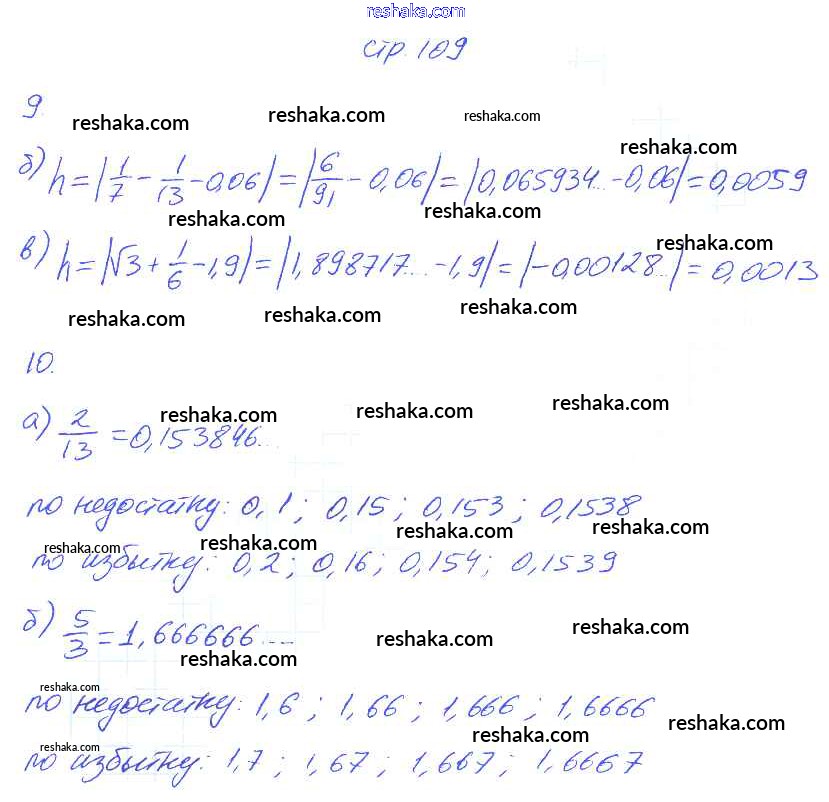 reshaka.com
стр. 109
9.
reshaka.com reshaka.com reshaka.com
reshaka.com
б) h = |1/7 - 1/13 - 0,06| = |6/91 - 0,06| = |0,065934... - 0,06| = 0,0059
reshaka.com reshaka.com
reshaka.com
в) h = |√3 + 1/6 - 1,9| = |1,898717... - 1,9| = |-0,00128...| = 0,0013
reshaka.com reshaka.com reshaka.com
10.
reshaka.com reshaka.com reshaka.com
а) 2/13 = 0,153846...
по недостатку: 0,1 ; 0,15 ; 0,153 ; 0,1538
reshaka.com reshaka.com reshaka.com reshaka.com
по избытку: 0,2 ; 0,16 ; 0,154 ; 0,1539
б) 5/3 = 1,666666....
reshaka.com reshaka.com reshaka.com
reshaka.com
по недостатку: 1,6 ; 1,66 ; 1,666 ; 1,6666
reshaka.com reshaka.com reshaka.com
по избытку: 1,7 ; 1,67 ; 1,667 ; 1,6667